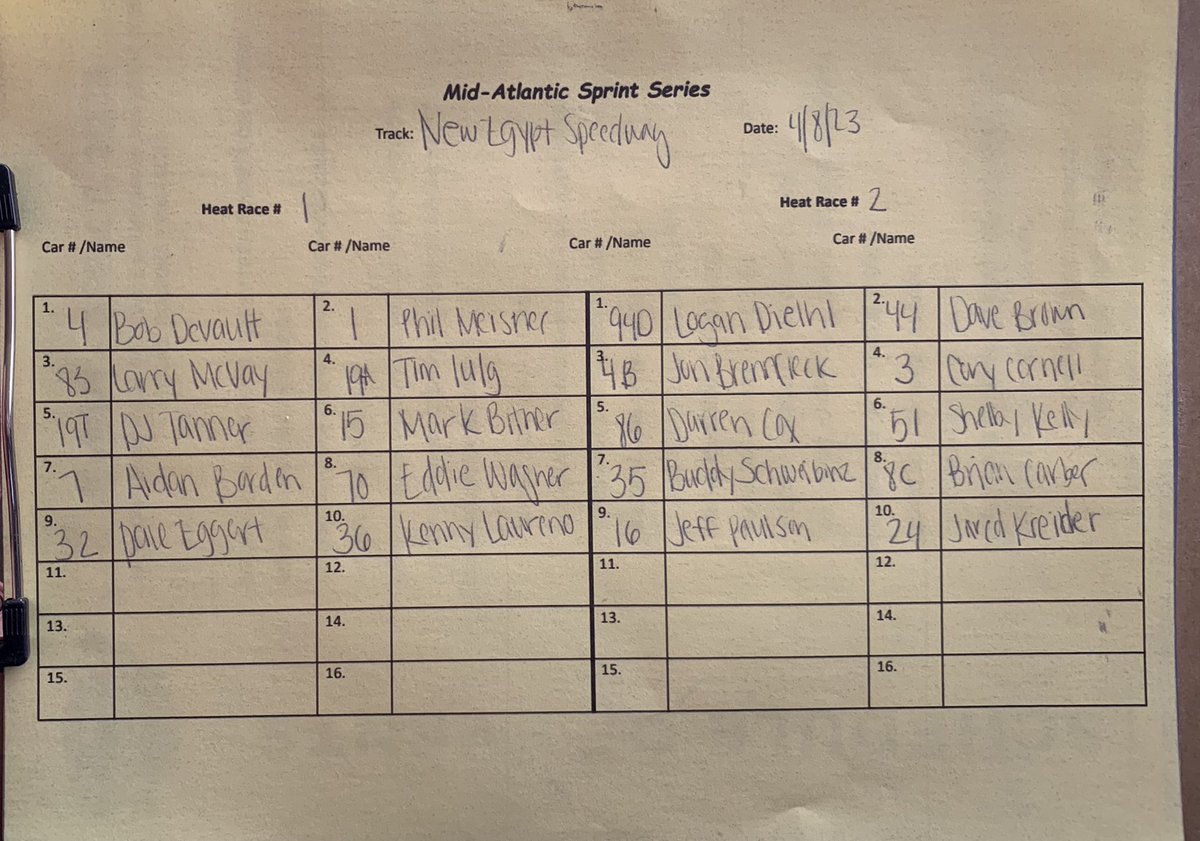 Mid-Atlantic Sprint Series
Track: New Egypt Speedway Date: 4/8/23
Heat Race # 1 Heat Race # 2
Car # /Name Car # /Name Car # /Name Car # /Name
1. 4 Bob Devault 2. 1 Phil Meisner 1. 940 Logan Diethl 2. 44 Dave Brown
3. 83 Larry McVay 4. 19A Tim Iulg 3. 4B Jon 4. 3 Cory Cornell
5. 19T DJ Tanner 6. 15 Mark Bitner 5. 86 Darren Cox 6. 51 Shelby Kelly
7. 7 Aidan Borden 8. 70 Eddie Wagner 7. 35 Buddy Schweibinz 8. 8C Brian Carber
9. 32 Dale Eggert 10. 36 Kenny Laureno 9. 16 Jeff Paulson 10. 24 Jared Kreider
11. 12. 11. 12.
13. 14. 13. 14.
15. 16. 15. 16.